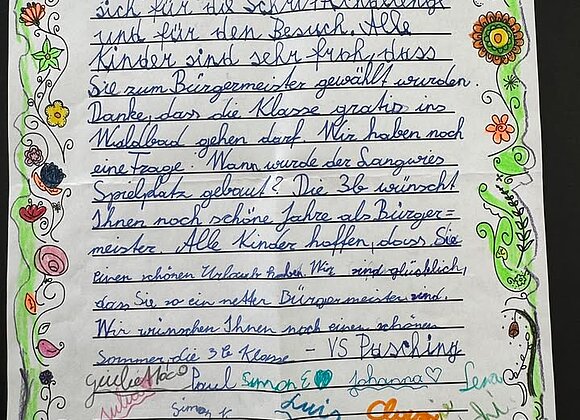 sich für die
und für den Besuch. Alle
Kinder sind sehr froh, dass
Sie zum Bürgermeister gewählt wurden.
Danke, dass die Klasse gratis ins
Waldbad gehen darf. Wir haben noch
eine Frage: Wann wurde der Langwies
Spielplatz gebaut? Die 3b wünscht
Ihnen noch schöne Jahre als Bürger=
meister. Alle Kinder hoffen, dass Sie
einen schönen Urlaub haben. Wir sind glücklich,
dass Sie so ein netter Bürgermeister sind.
Wir wünschen Ihnen noch einen schönen
Sommer, die 3b Klasse – VS Pasching
Paul Simon E Johanna♡ Lena
Julian Simon K Luis